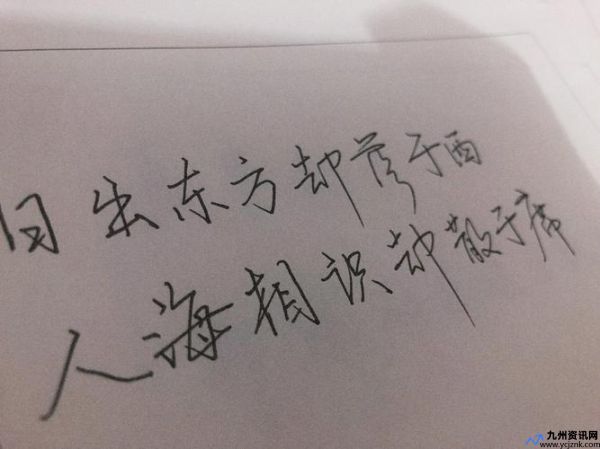 日出东方却落于西
人海相识却散于席
九州资讯网
www.ycjznk.com